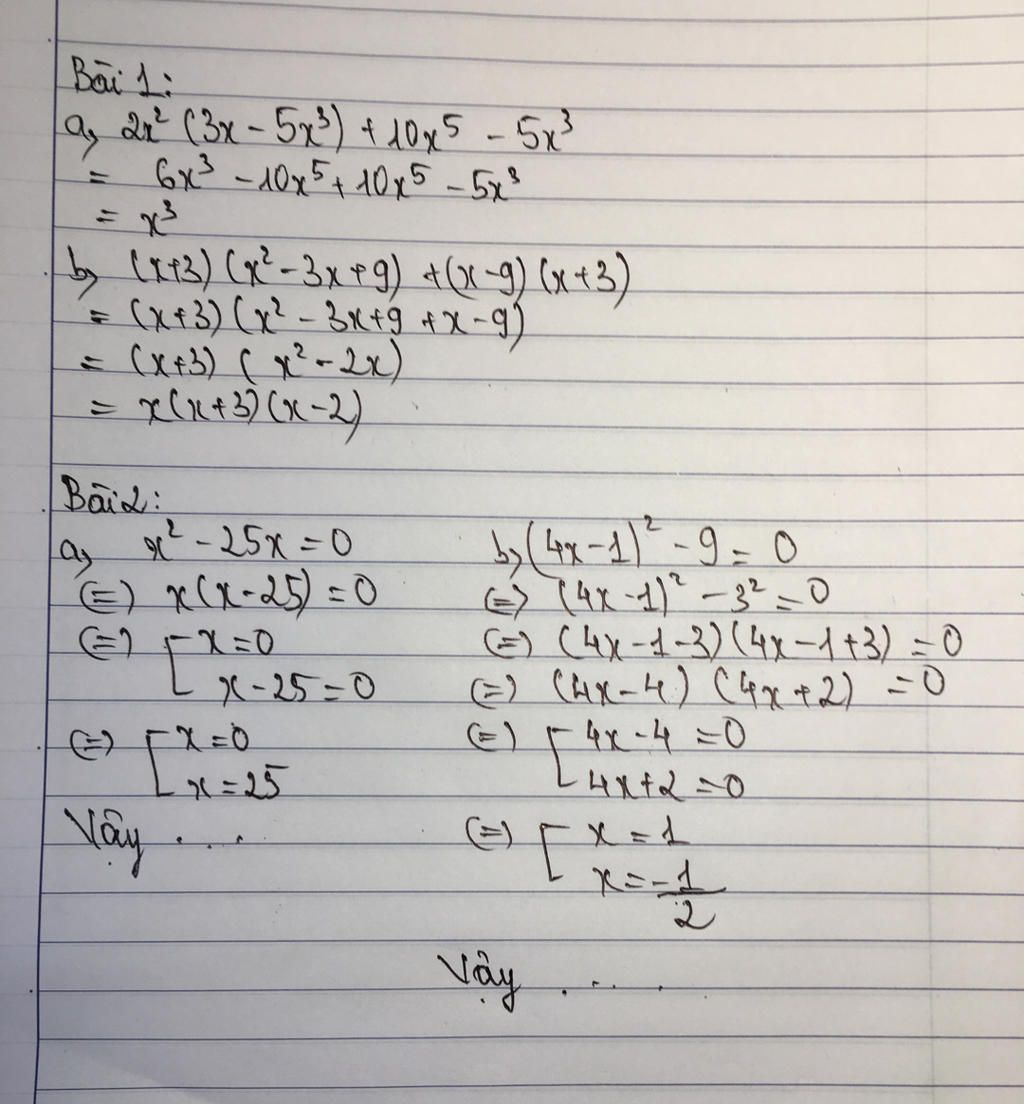 Bài 1:
a, 2x² (3x - 5x³) + 10x⁵ - 5x³
= 6x³ - 10x⁵ + 10x⁵ - 5x³
= x³
b, (x+3) (x² - 3x + 9) + (x - 9) (x + 3)
= (x+3) (x² - 3x + 9 + x - 9)
= (x+3) (x² - 2x)
= x(x+3)(x - 2)
Bài 2:
a, x² - 25x = 0
(=) x(x - 25) = 0
(=) [ x = 0
x - 25 = 0
(=) [ x = 0
x = 25
Vậy . . . .
b, (4x - 1)² - 9 = 0
(=) (4x - 1)² - 3² = 0
(=) (4x - 1 - 3)(4x - 1 + 3) = 0
(=) (4x - 4) (4x + 2) = 0
(=) [ 4x - 4 = 0
4x + 2 = 0
(=) [ x = 1
x = -1/2
Vậy . . . .